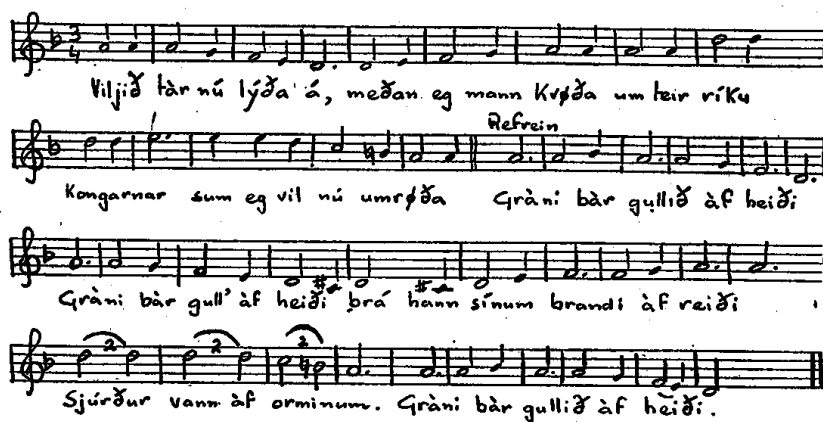 Viljið tàr nú lýða á, meðan eg mann Kvøða um teir ríku
Refrein
Kongarnar sum eg vil nú umrøða Gràni bàr gullið àf heiði
Gràni bàr gull' àf heiði brá hann sínum brandi àf reiði
Sjúrður vann àf orminum. Gràni bàr gullið àf heiði.